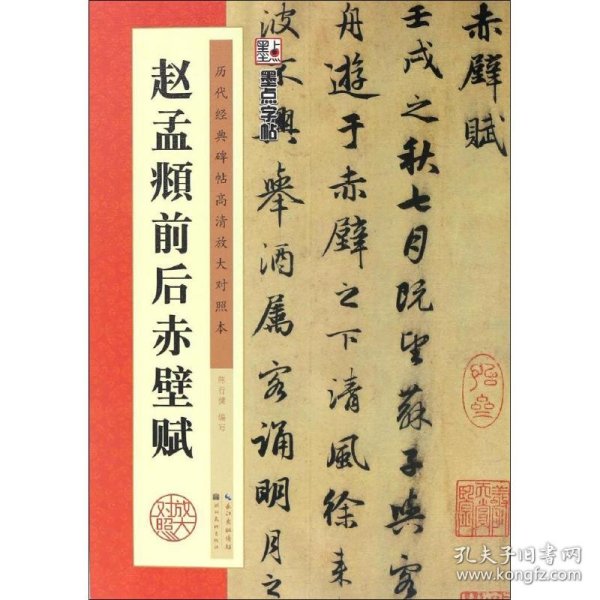 赤壁赋
壬戌之秋七月既望苏子与客
舟遊于赤壁之下清风徐来
波不兴举酒属客诵明月之
墨点
墨点字帖
历代经典碑帖高清放大对照本
陈行健 编写
赵孟頫前后赤壁赋
放大对照
长江出版传媒
湖北美术出版社
孔夫子旧书网
www.kongfz.com